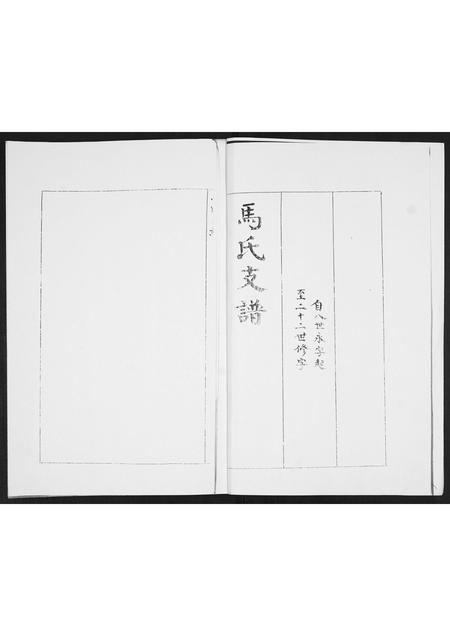 自八世永字起
至二十二世修字
馬氏支譜